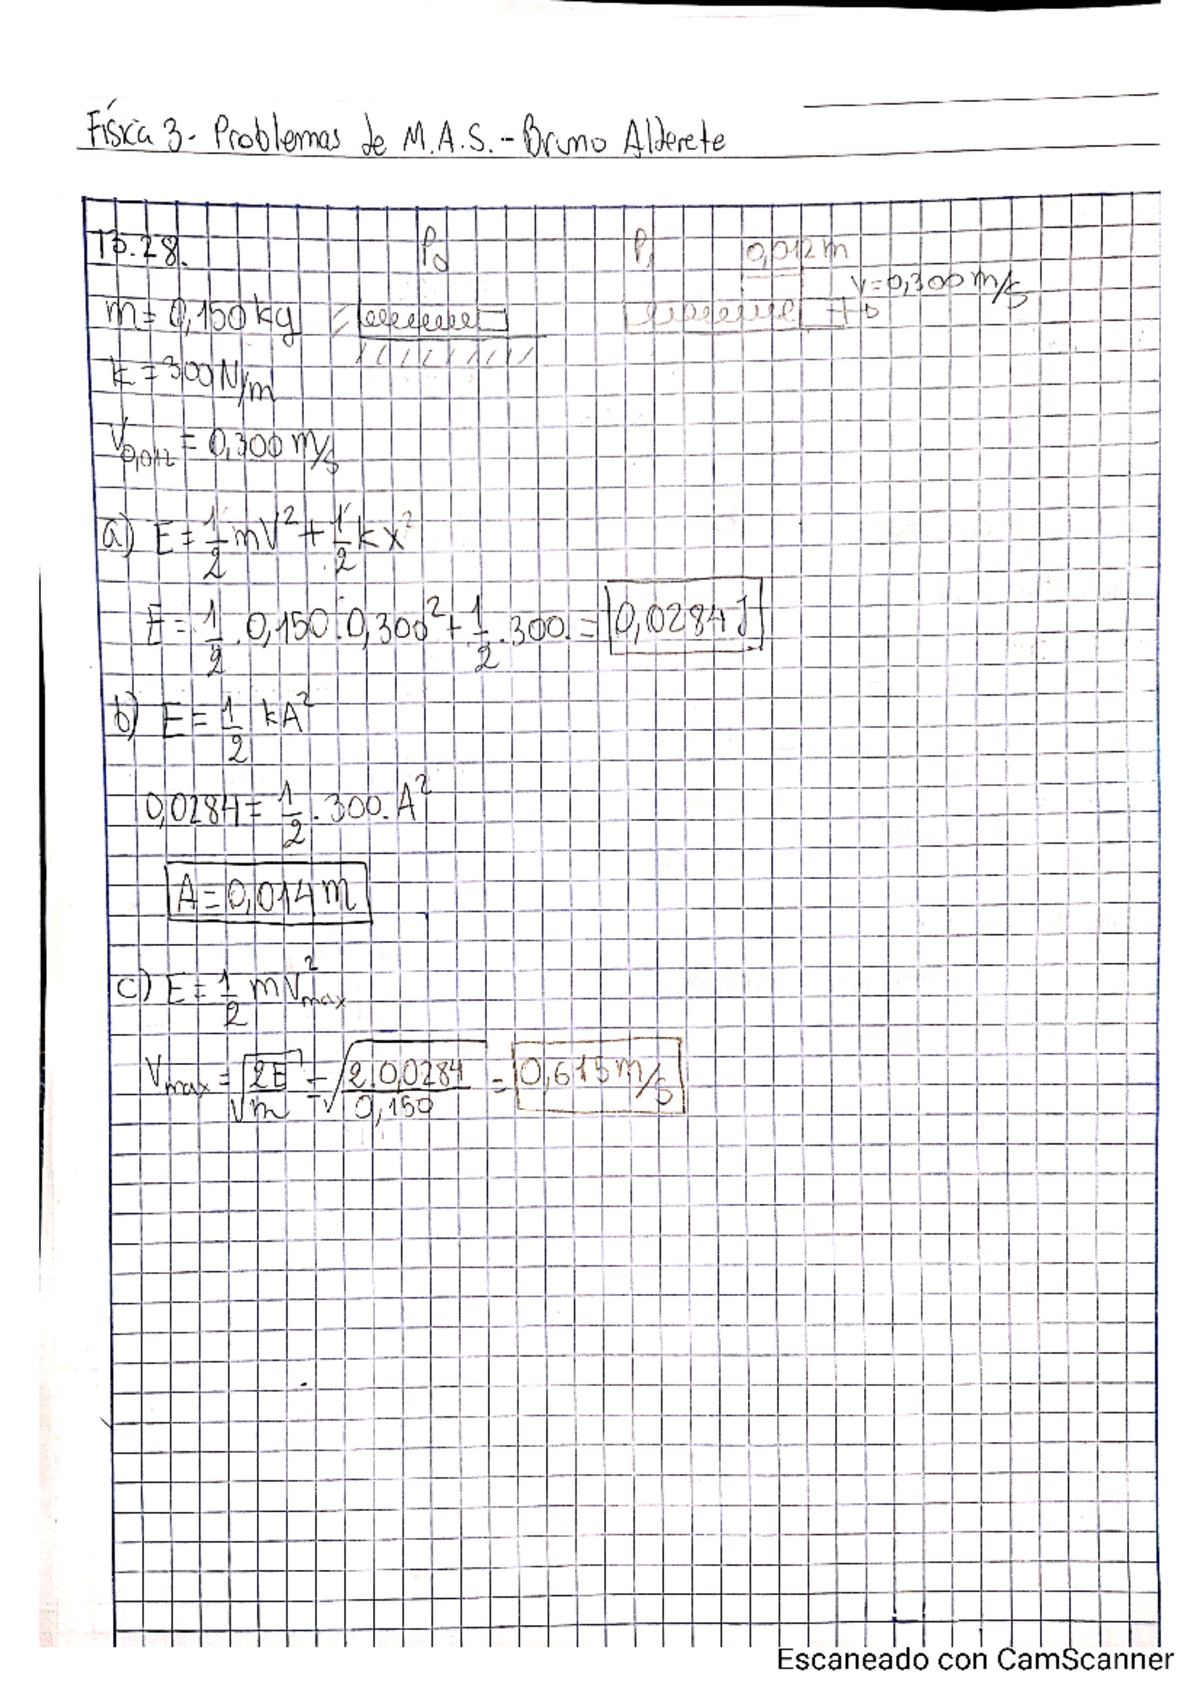 Física 3 - Problemas de M.A.S. - Bruno Alderete
13.28.
P₀
P₁
0,012m
v=0,300m/s
m=0,150kg
k=300N/m
V₀,₀₁₂ = 0,300m/s
a) E = 1/2 mV² + 1/2 kx²
E = 1/2 . 0,150 . 0,300² + 1/2 . 300. = 0,0284J
b) E = 1/2 kA²
0,0284 = 1/2 . 300. A²
A = 0,014m
c) E = 1/2 mV²max
Vmax = √2E/m = √2.0,0284/0,150 = 0,615m/s
Escaneado con CamScanner